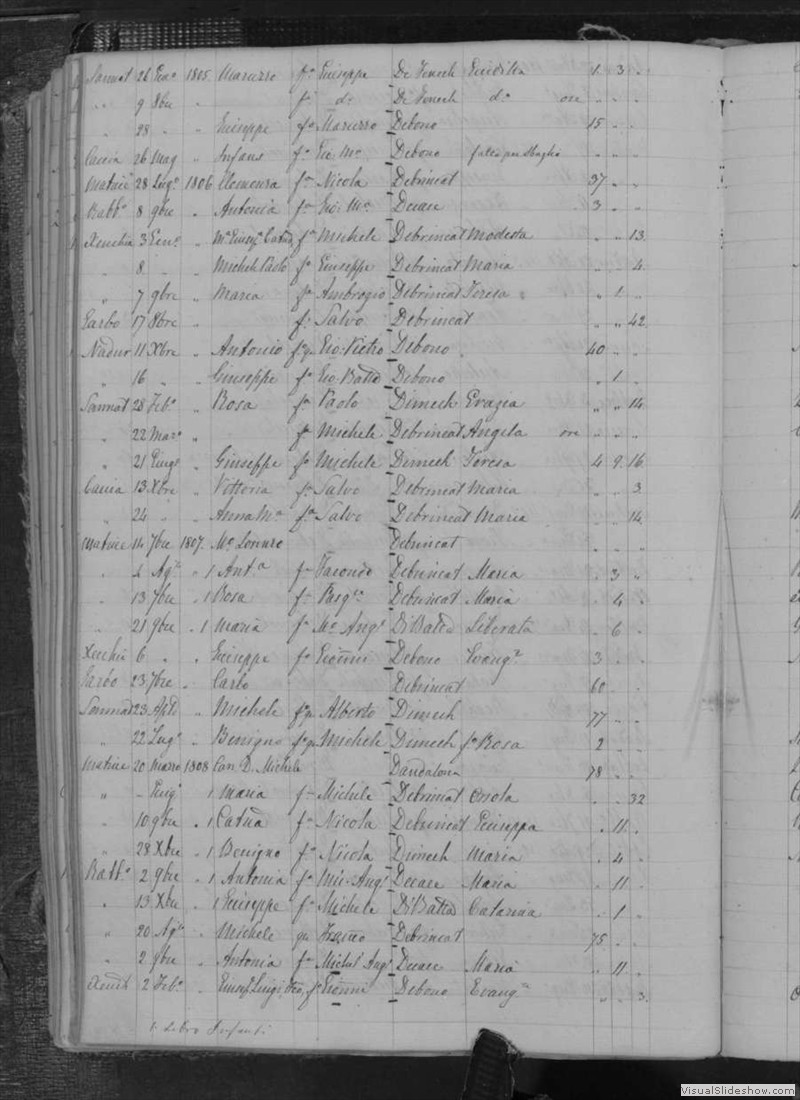 Sannat 26 Gen.o 1805 Maruzzo f.o Giuseppe De Fenech 1 3
" 9 8bre " f.o d.o De Fenech d.o ore
" 28 " " Giuseppe f.o Maruzzo Debono 15
Caccia 26 Mag " Infans f.o Gio M.a Debono
Matrice 28 Lug.o 1806 Eleonora f.a Nicola Debrincat 37
Rabb.o 8 9bre " Antonia f.a Gio. M.a 3
Xeuchia 3 Gen.o " f.a Michele Debrincat Modesta 13
" 8 " Michele Paolo f.o Giuseppe Debrincat Maria 4
" 7 9bre " Maria f.a Ambrogio Debrincat Teresa " 1
Garbo 17 8bre " f. Salvo Debrincat " " 42
Nadur 11 Xbre " Antonio f.o q. Gio. Pietro Debono 40
" 16 " Giuseppe f.o Gio Batta Debono " 1
Sannat 28 Feb.o " Rosa f.a Paolo Dimech Grazia " " 14
" 22 Mar.o " f.o Michele Debrincat Angela ore
" 21 Giug.o " Giuseppe f.o Michele Dimech Teresa 4 9 16
Caccia 13 Xbre " Vittoria f.a Salvo Debrincat Maria 3
" 24 " Anna M.a f.a Salvo Debrincat Maria 14
Matrice 14 7bre 1807. M.o Lorenzo Debrincat
" 4 Ag.o " 1 Ant.a f.a Facondo Debrincat Maria 3
" 13 7bre " 1 Rosa f.a Debrincat Maria 4
" 21 9bre . 1 Maria f.a M.o Ang.o DiBatta Liberata 6
Xeuchia 6 " " Giuseppe f.o Debono Evang.a 3
Garbo 23 7bre " Carlo Debrincat 60
Sannat 23 Apl " Michele f.o q. Alberto Dimech 77
" 22 Lug.o " Benigno f.o q. Michele Dimech f.o Rosa 2
Matrice 20 Marzo 1808 Can D. Michele Dandalona 78
" - Giug.o 1 Maria f.a Michele Debrincat Orsola 32
" 10 9bre . 1 Catña f.a Nicola Debrincat Giuseppa 11
" 28 Xbre " 1 Benigno f.o Nicola Dimech Maria 4
Rabb.o 2 9bre . 1 Antonia f.a Mic. Ang.o Maria 11
" 13 Xbre 1 Giuseppe f.o Michele DiBatta Catarina 1
" 20 Ag.o " Michele qu Debrincat 75
" 2 9bre " Antonia f.a Michel Ang.o Maria 11
Xeuch 2 Feb.o " f.o Debono Evang.a 3
1. Libro Infanti
VisualSlideshow.com